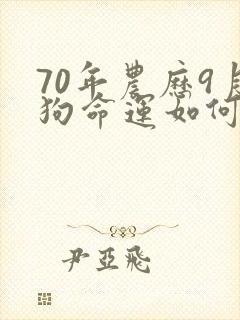 70年農歷9
狗命運如何
尹亞飛